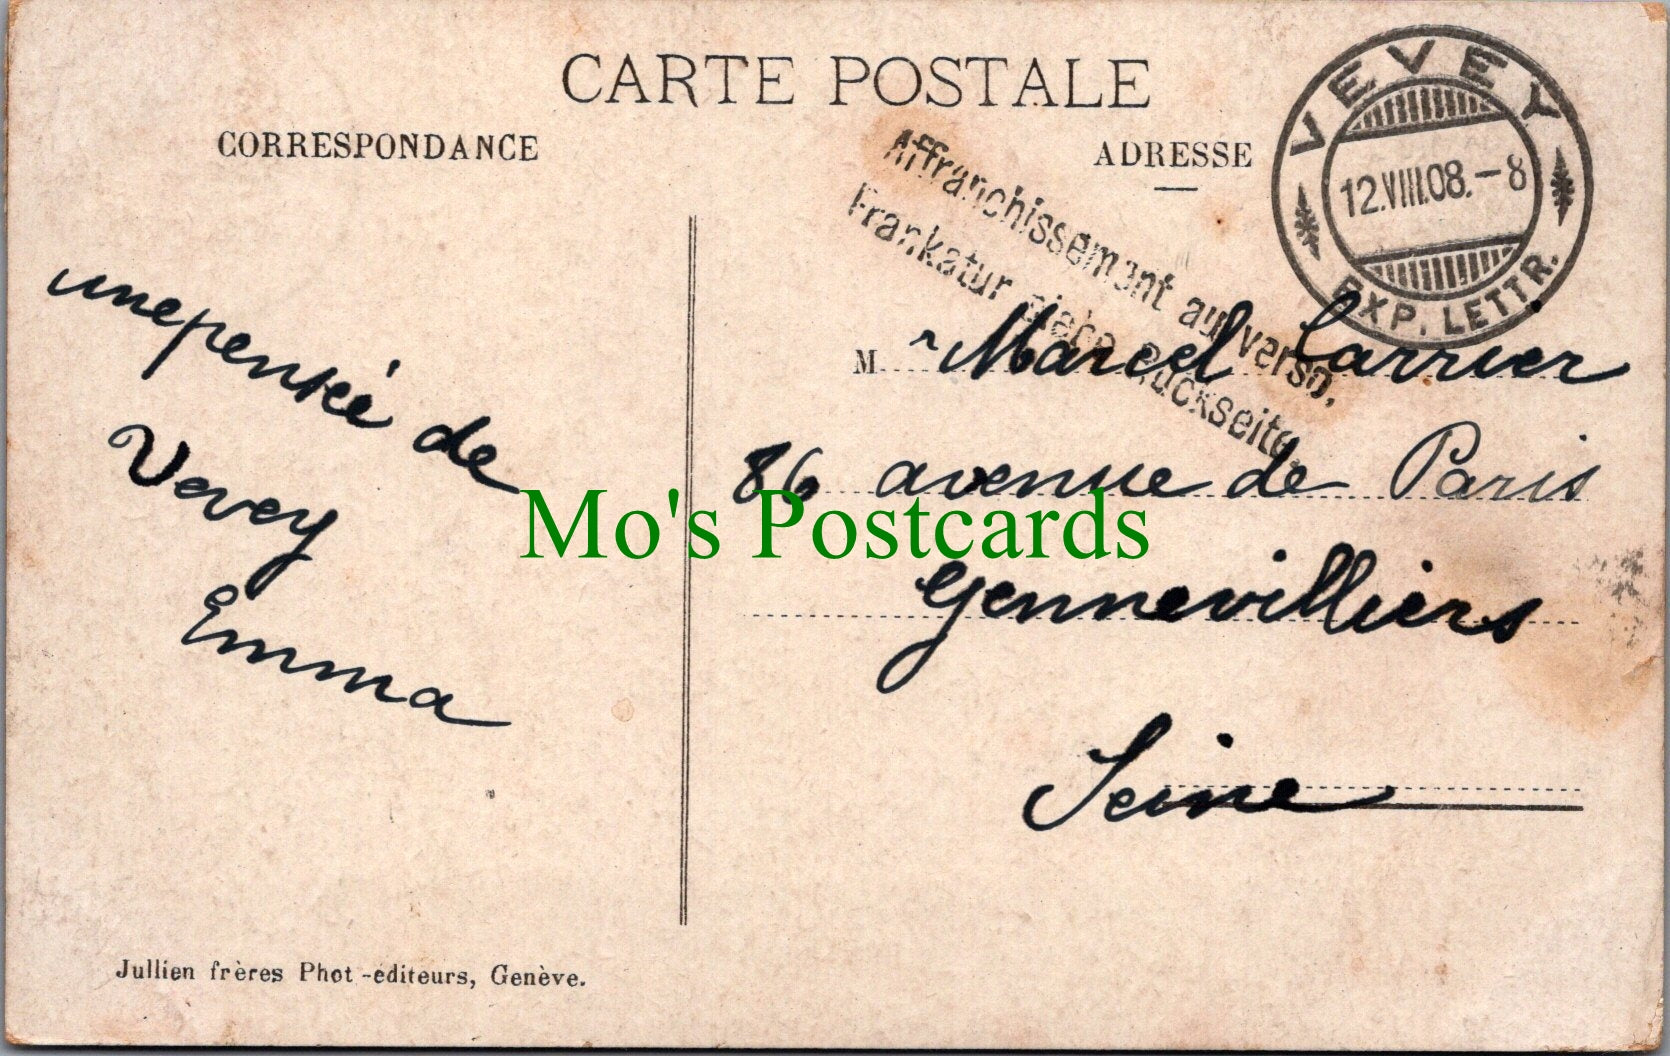 CARTE POSTALE
CORRESPONDANCE
ADRESSE
VEVEY
12.VIII.08.-8
EXP. LETTR.
Affranchissement au verso.
Frankatur siehe Rückseite.
une pensée de
Vevey
Emma
M. Marcel Carrier
86 avenue de Paris
Gennevilliers
Seine
Mo's Postcards
Jullien frères Phot-editeurs, Genève.